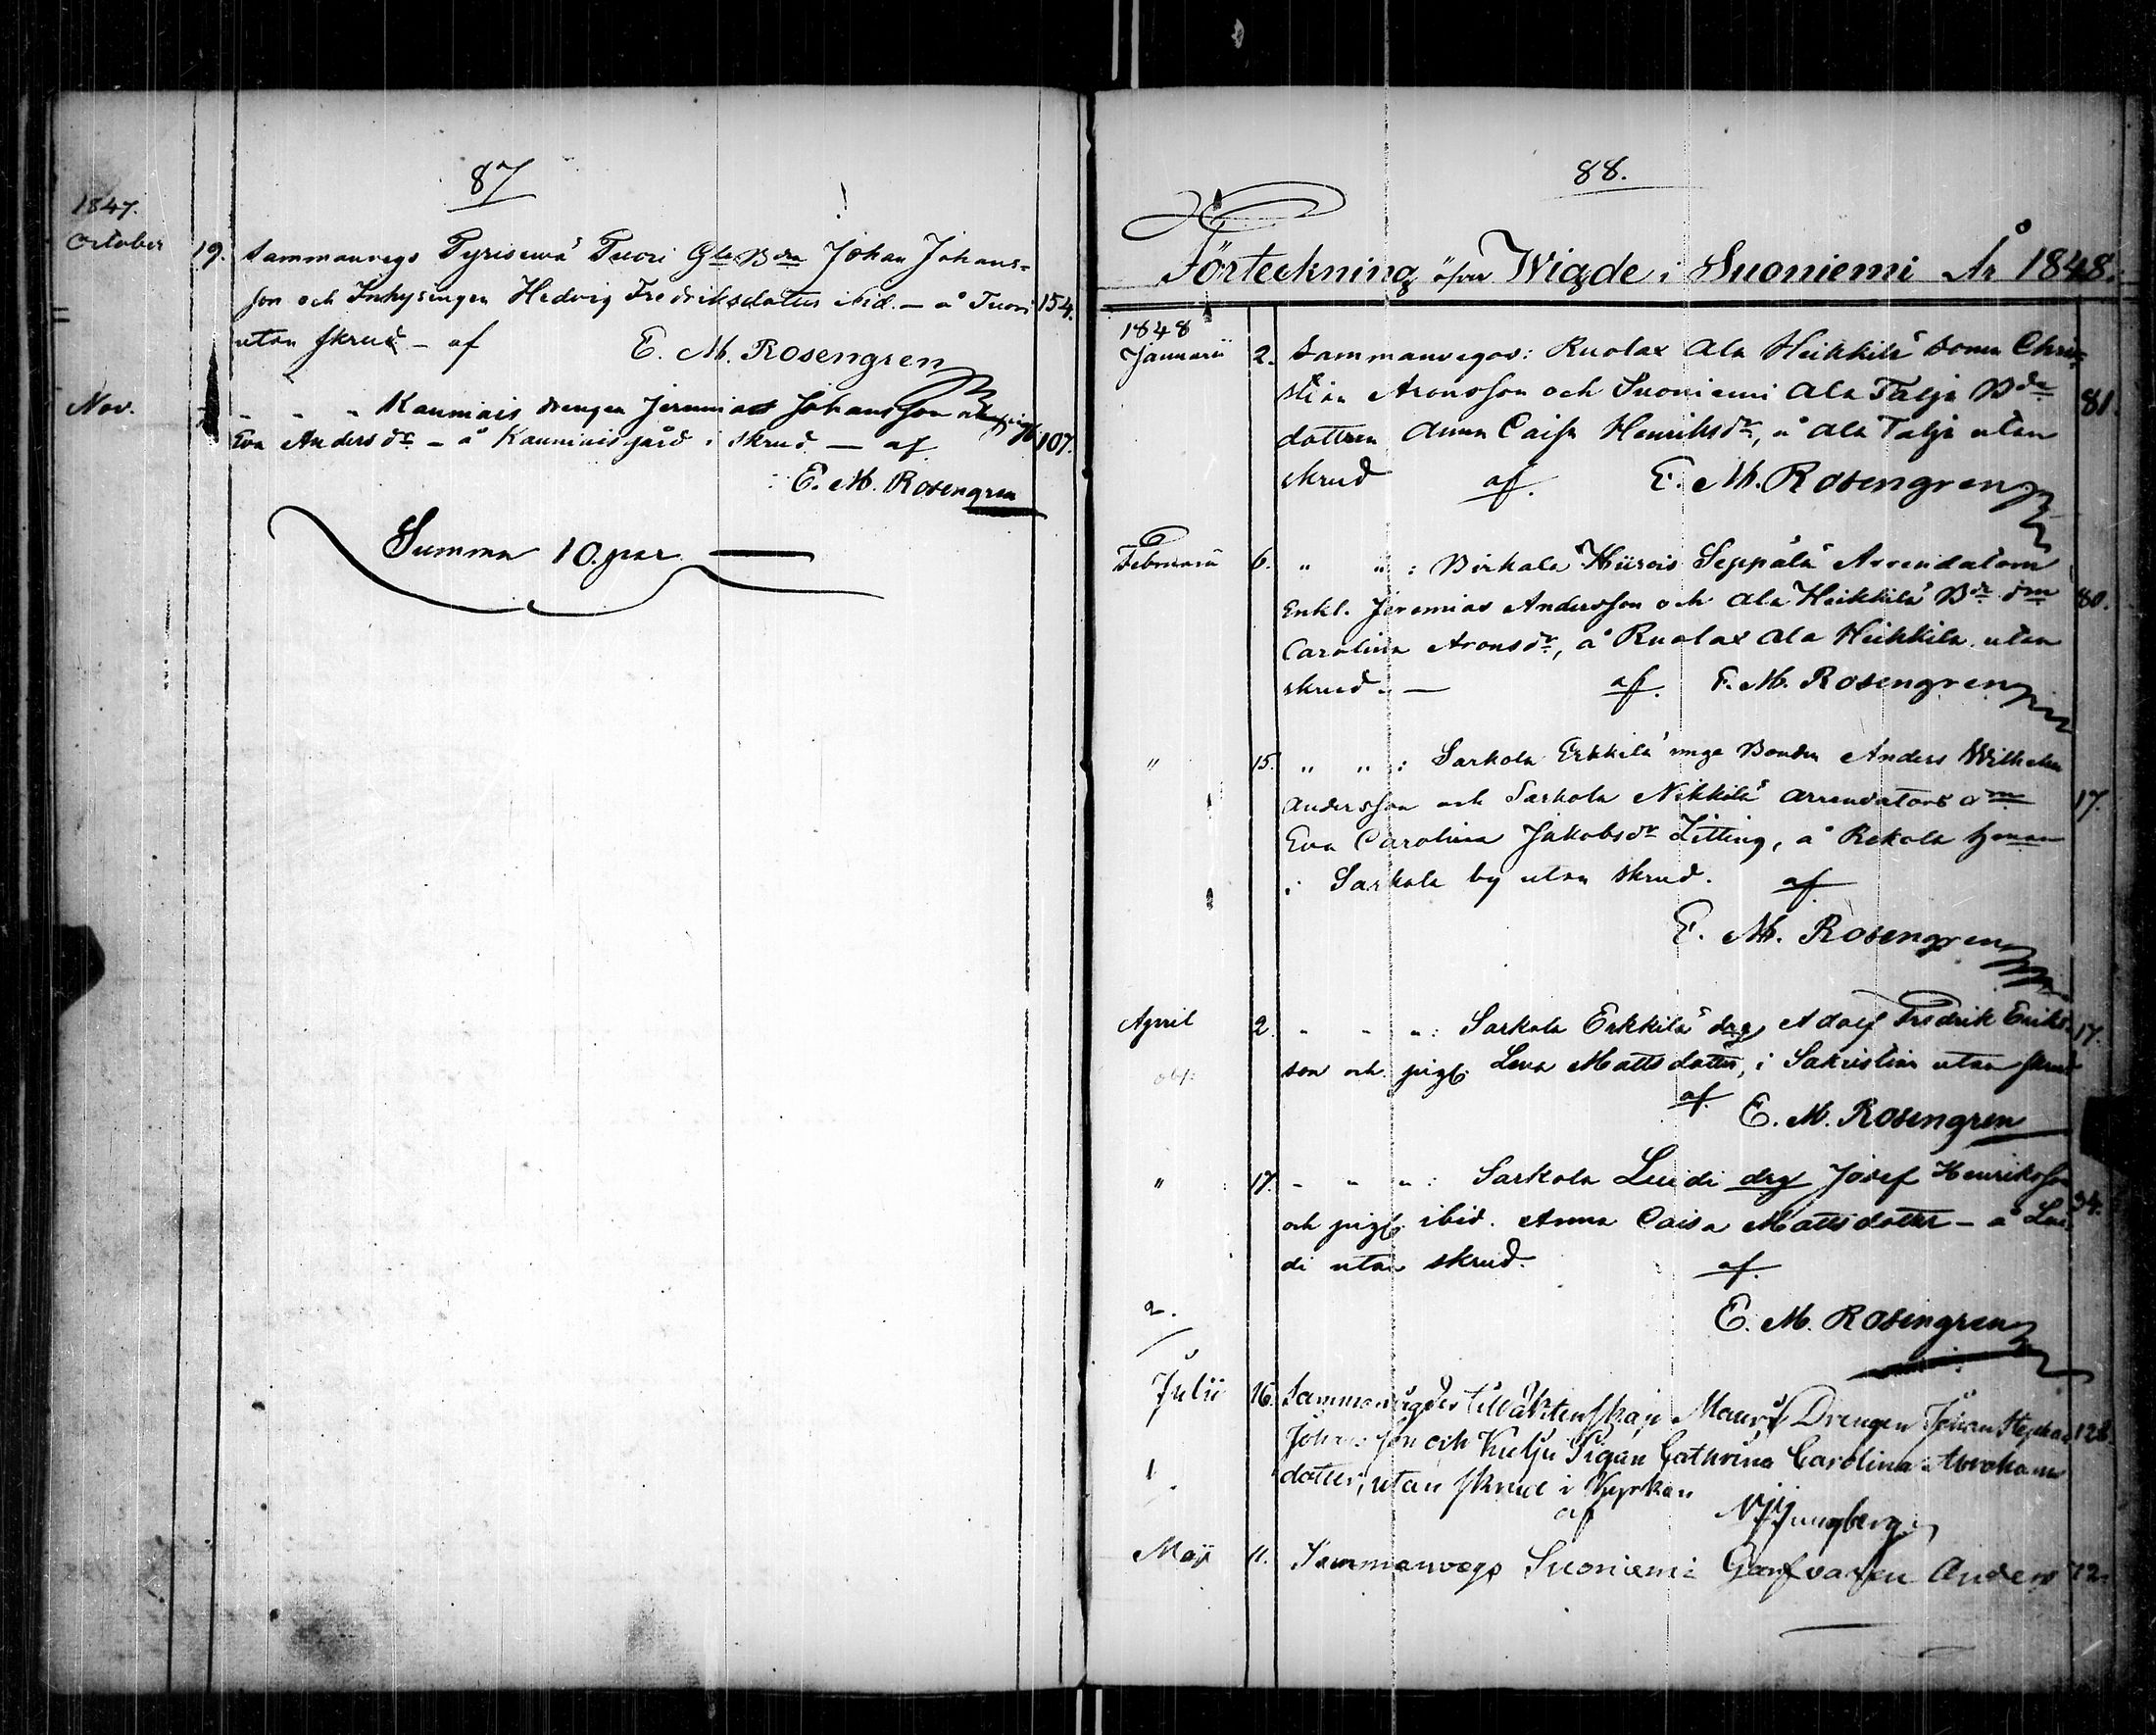 87
1847.
October 19. Sammanvegs Tyrisevä Tuori Gle Bdn Johan Johans-
son och Inhysingen Hedvig Fredriksdotter ibid. — å Tuori 154.
utan skrud — af E. M. Rosengren
Nov. " " " Kauniais drengen Jeremias Johansson och
Eva Andersdr — å Kauniais gård i skrud — af 107.
E. M. Rosengren
Summa 10. par
88.
Förteckning öfver Wigde i Suoniemi År 1848.
1848
Januarii 2. Sammanvegos: Kuolax Ala Heikkilä Sonen Chri-
stian Aronsson och Suoniemi Ala Talja Bde 81.
dottren Anna Caisa Henriksdr, å Ala Talja utan
skrud af. E. M. Rosengren
Februarii 6. " " : Birkala Hiirois Seppälä Arrendatorn
Enkl. Jeremias Andersson och Ala Heikkilä Bde 80.
Carolina Aronsdr, å Kuolax Ala Heikkila utan
skrud. — af. E. M. Rosengren
" 15. " " : Sarkola Erkkilä unga Bonden Anders Wilhelm
Andersson och Sarkola Nikkilä arrendators 17.
Eva Carolina Jakobsdr Litting, å Rekola
i Sarkola by utan skrud. af
E. M. Rosengren
April 2. " " " : Sarkola Erkkilä drg Adolf Fredrik Eriks- 17.
obs:
son och pig. Lena Mattsdotter, i Sakristian utan skrud
af. E. M. Rosengren
" 17. " " " : Sarkola Luidi drg Josef Henriksson 34.
och pig. ibid. Anna Caisa Mattsdotter — å Lui-
di utan skrud. af.
2.
E. M. Rosengren
Julii 16. Sammanvigdes till äktenskap Drengen Johan Stephan 128.
Johansson och Kulju Pigan Cathrina Carolina Abrahams
1
dotter, utan skrud i Kyrkan
af Ljungberg
Maji 11. Sammanvegs Suoniemi Garfvaren Anders 72.